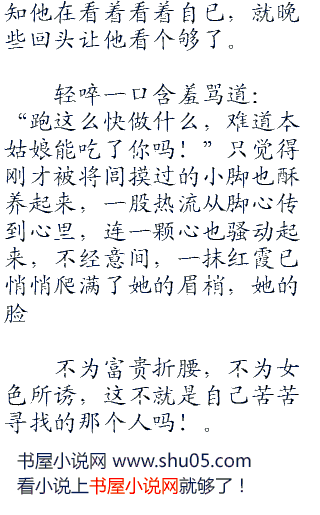 知他在看着看着自已，就晚
些回头让他看个够了。
轻啐一口含羞骂道：
“跑这么快做什么，难道本
姑娘能吃了你吗！”只觉得
刚才被将闾摸过的小脚也酥
养起来，一股热流从脚心传
到心里，连一颗心也骚动起
来，不经意间，一抹红霞已
悄悄爬满了她的眉梢，她的
脸
不为富贵折腰，不为女
色所诱，这不就是自己苦苦
寻找的那个人吗！。
书屋小说网 www.shu05.com
看小说上书屋小说网就够了！